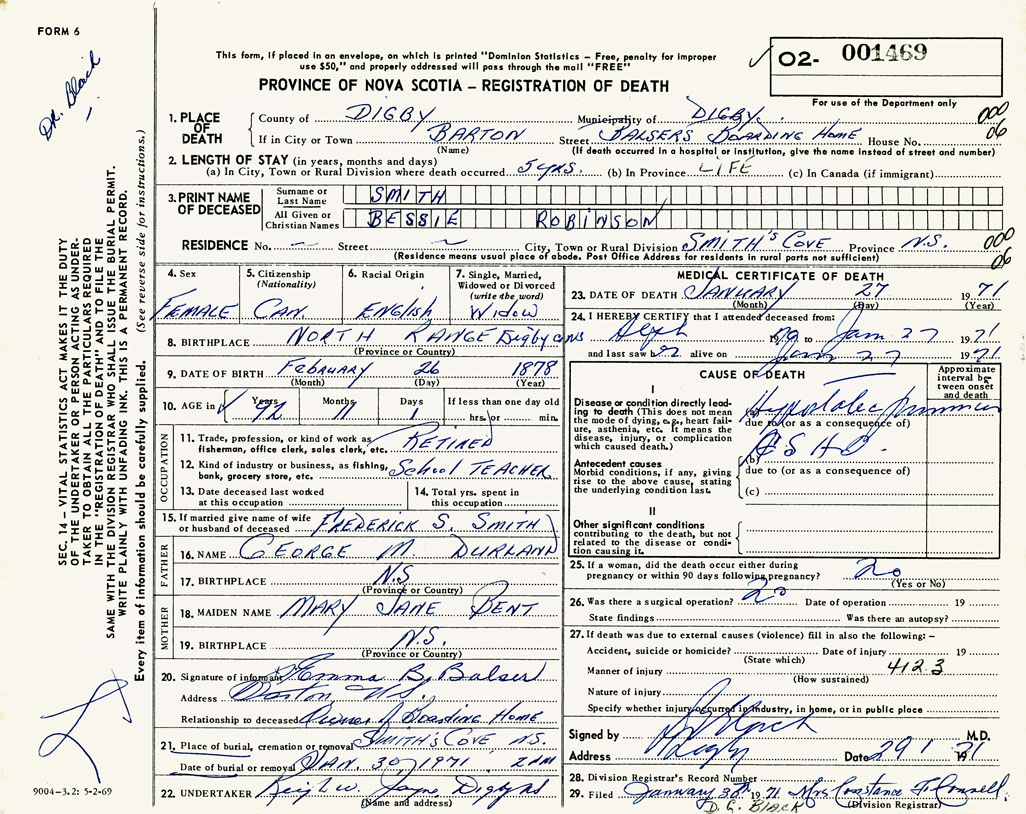 FORM 6
Dr. Black
This form, if placed in an envelope, on which is printed "Dominion Statistics – Free, penalty for improper
use $50," and properly addressed will pass through the mail "FREE"
02- 001469
For use of the Department only
PROVINCE OF NOVA SCOTIA – REGISTRATION OF DEATH
000
06
1. PLACE OF DEATH
County of DIGBY Municipality of DIGBY.
If in City or Town BARTON Street BALSER'S BOARDING HOME House No.
(Name) (If death occurred in a hospital or institution, give the name instead of street and number)
2. LENGTH OF STAY (in years, months and days)
(a) In City, Town or Rural Division where death occurred 5 yrs. (b) In Province LIFE (c) In Canada (if immigrant)
3. PRINT NAME OF DECEASED
Surname or Last Name SMITH
All Given or Christian Names BESSIE ROBINSON
RESIDENCE No. — Street — City, Town or Rural Division SMITH'S COVE Province N.S. 000
(Residence means usual place of abode. Post Office Address for residents in rural parts not sufficient) 06
4. Sex
FEMALE
5. Citizenship
(Nationality)
CAN.
6. Racial Origin
ENGLISH
7. Single, Married,
Widowed or Divorced
(write the word)
WIDOW
8. BIRTHPLACE NORTH RANGE Digby
(Province or Country)
9. DATE OF BIRTH FEBRUARY 26 1878
(Month) (Day) (Year)
10. AGE in Years Months Days If less than one day old
92 11 1 hrs. or min.
OCCUPATION
11. Trade, profession, or kind of work as
fisherman, office clerk, sales clerk, etc. RETIRED
12. Kind of industry or business, as fishing,
bank, grocery store, etc. School TEACHER
13. Date deceased last worked
at this occupation
14. Total yrs. spent in
this occupation
15. If married give name of wife
or husband of deceased FREDERICK S. SMITH
FATHER
16. NAME GEORGE M DURLAND
17. BIRTHPLACE N.S
(Province or Country)
MOTHER
18. MAIDEN NAME MARY JANE BENT
19. BIRTHPLACE N.S.
(Province or Country)
20. Signature of informant Emma B. Balser
Address Barton N.S.
Relationship to deceased Owner of Boarding Home
21. Place of burial, cremation or removal SMITH'S COVE N.S.
Date of burial or removal JAN. 30, 1971. 2 PM
22. UNDERTAKER Jayne
(Name and address)
MEDICAL CERTIFICATE OF DEATH
23. DATE OF DEATH JANUARY 27 1971
(Month) (Day) (Year)
24. I HEREBY CERTIFY that I attended deceased from:
19 to Jan 27 1971
and last saw her alive on Jan 27 1971
CAUSE OF DEATH
Approximate
interval be-
tween onset
and death
I
Disease or condition directly lead-
ing to death (This does not mean
the mode of dying, e.g., heart fail-
ure, asthenia, etc. It means the
disease, injury, or complication
which caused death.)
(a)
due to (or as a consequence of)
Antecedent causes
Morbid conditions, if any, giving
rise to the above cause, stating
the underlying condition last.
(b) A S H D.
due to (or as a consequence of)
(c)
II
Other significant conditions
contributing to the death, but not
related to the disease or condi-
tion causing it.
25. If a woman, did the death occur either during
pregnancy or within 90 days following pregnancy? no
(Yes or No)
26. Was there a surgical operation? no Date of operation 19
State findings Was there an autopsy?
27. If death was due to external causes (violence) fill in also the following: –
Accident, suicide or homicide? Date of injury 19
(State which)
Manner of injury 4123
(How sustained)
Nature of injury
Specify whether injury occurred in industry, in home, or in public place
Signed by M.D.
Address Digby Date 29 1 1971
28. Division Registrar's Record Number
29. Filed January 30th 1971 Mrs Constance F. Connell
D. G. BLACK (Division Registrar)
SEC. 14 – VITAL STATISTICS ACT MAKES IT THE DUTY
OF THE UNDERTAKER OR PERSON ACTING AS UNDER-
TAKER TO OBTAIN ALL THE PARTICULARS REQUIRED
IN THE "REGISTRATION OF DEATH" AND TO FILE THE
SAME WITH THE DIVISION REGISTRAR WHO SHALL ISSUE THE BURIAL PERMIT.
WRITE PLAINLY WITH UNFADING INK. THIS IS A PERMANENT RECORD.
Every item of information should be carefully supplied. (See reverse side for instructions.)
9004-3.2: 5-2-69